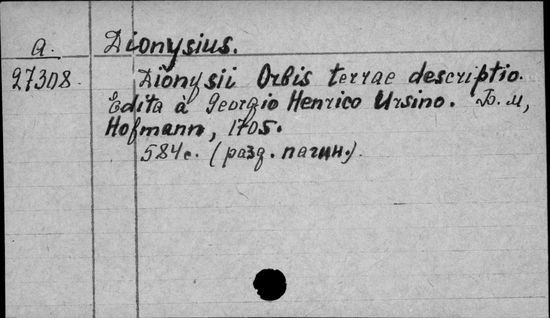 a.
Dionysius.
27308.
Dionysii Orbis terrae descriptio.
Edita à Georgio Henrico Ursino. Б.м,
Hofmann, 1705.
584c. (разд. пагин.).